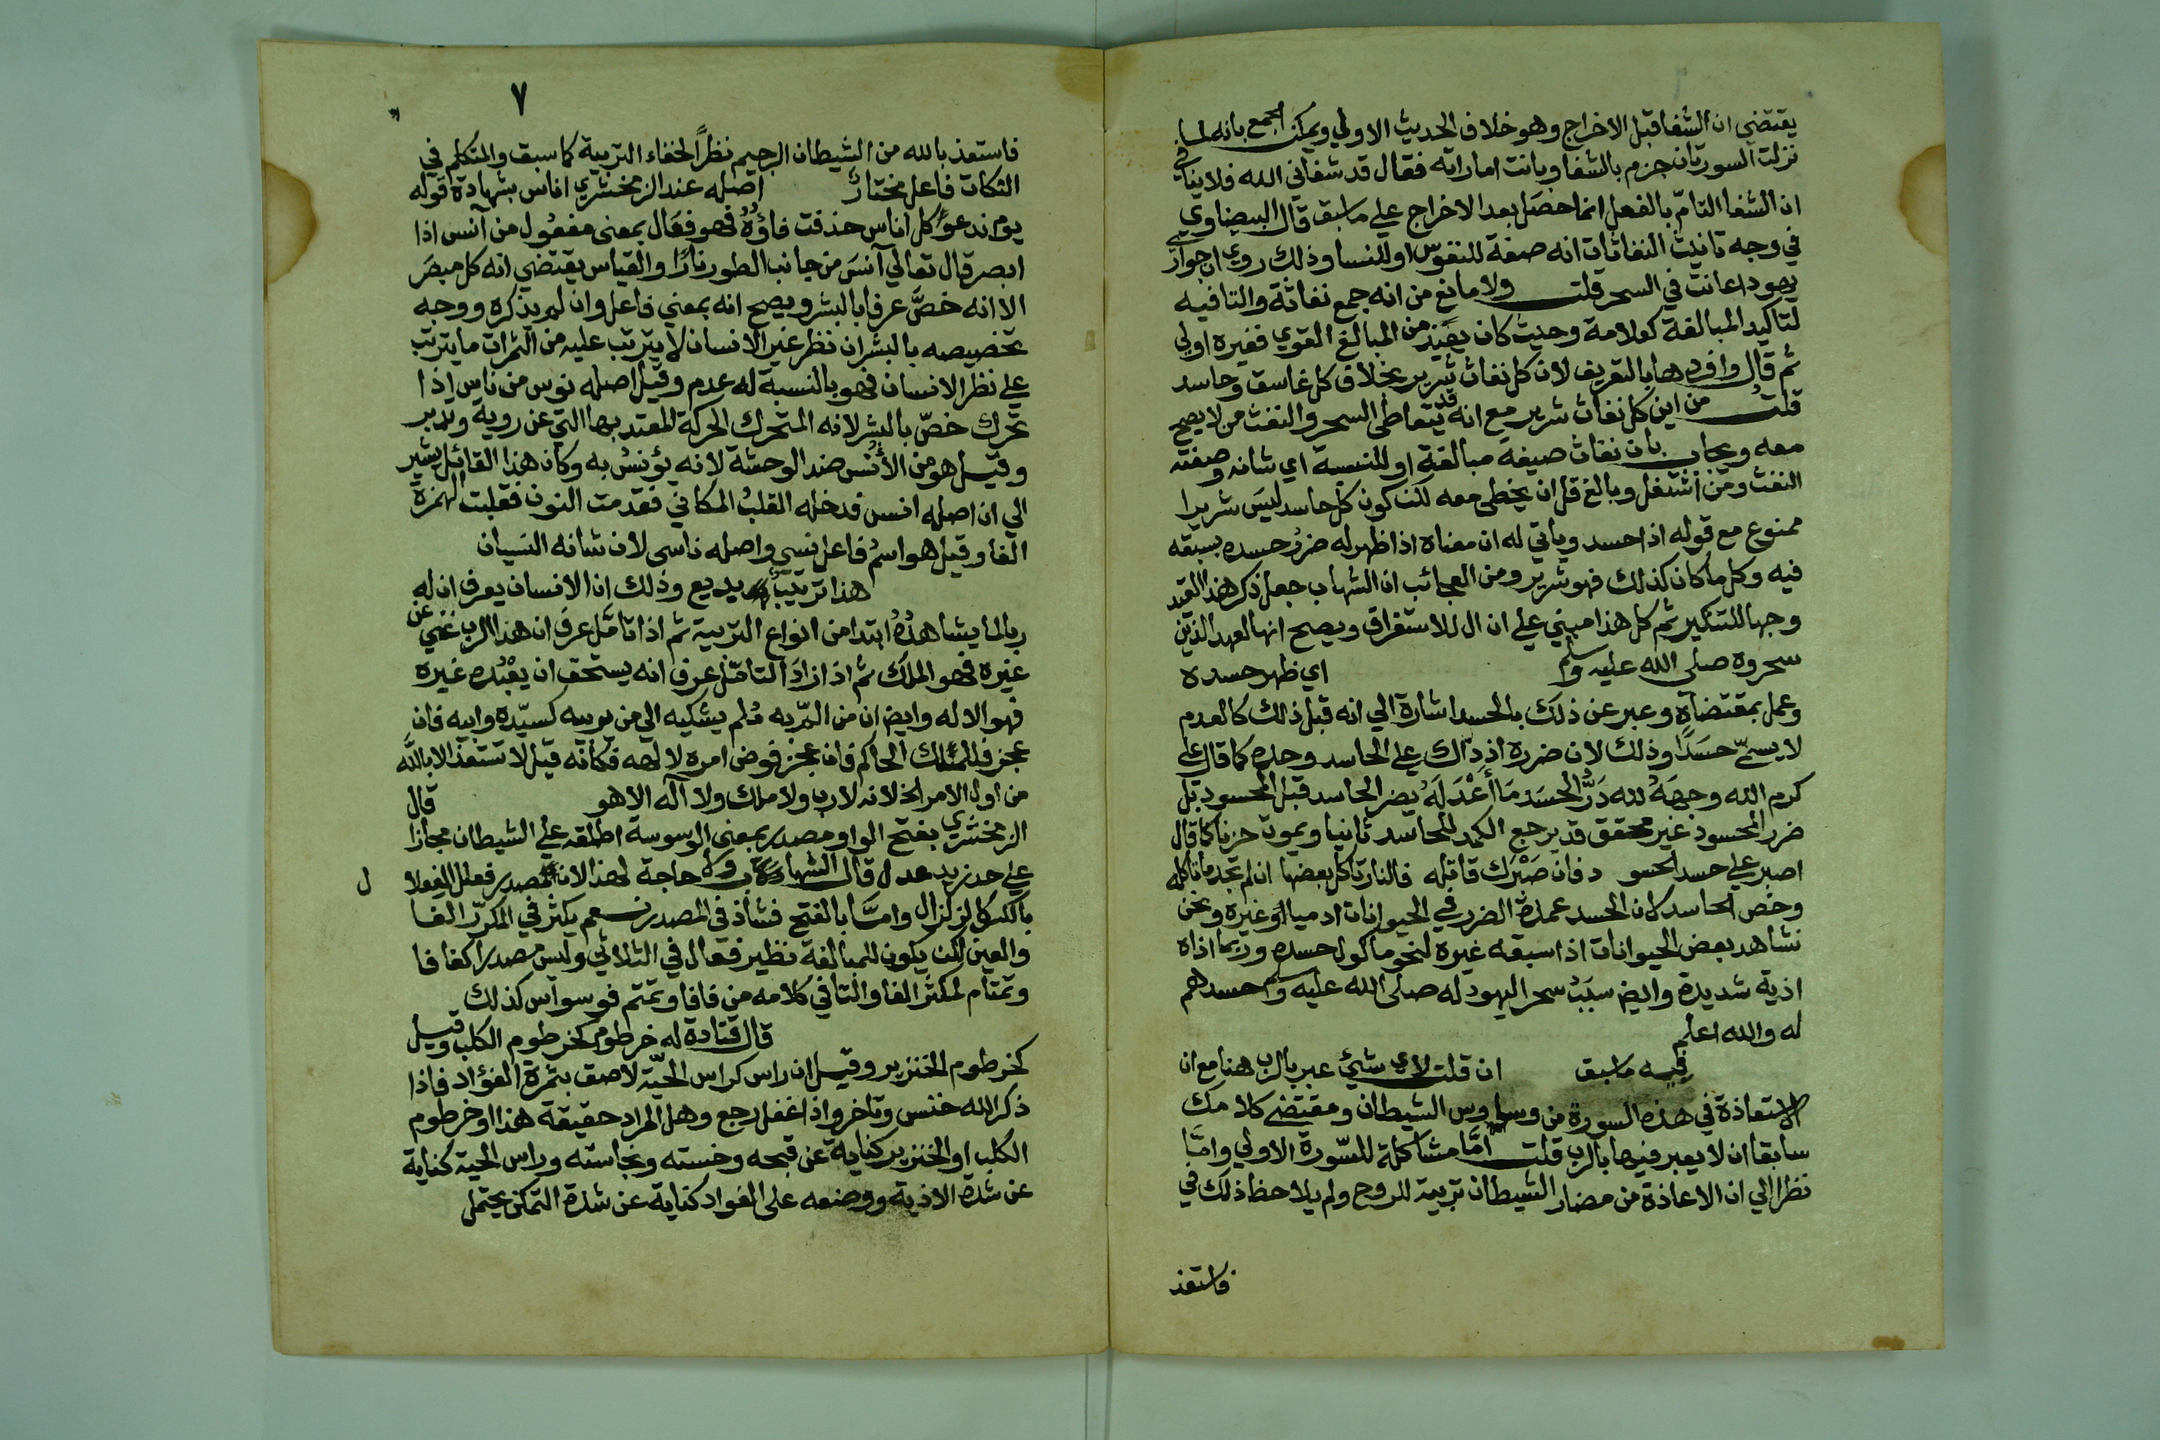 يقتضي ان الشفا قبل الاخراج وهو خلاف الحديث الاولي ويمكن الجمع بانه لما
نزلت السورتان جزم بالشفا وبانت اماراته فقال قد شفاني الله فلا ينافي
ان الشفا التامّ بالفعل انما حصَل بعد الاخراج علي ما سبق قال البيضاوي
في وجه تانيث النفاثات انه صفة للنفوس او للنسا وذلك روي ان جواري
يهود اعانت في السحر قلت ولا مانع من انه جمع نفاثة والتا فيه
لتاكيد المبالغة كعلامة وحيث كان يعيذ من المبالغ القوي فغيره اولي
ثم قال وافردها بالتعريف لان كل نفاث شرير بخلاف كل غاسق وحاسد
قلت من اين كل نفاث شرير مع انه قد يتعاطى السحر والنفث من لا يصح
معه ويجاب بان نفاث صيغة مبالغة او للنسبة اي شانه وصفته
النفث ومن اشتغل وبالغ قل ان يخطي معه لكن كون كل حاسد ليسَ شريرا
ممنوع مع قوله اذا حسد وياتي له ان معناه اذا ظهر له ضرر حسده بسبقه
فيه وكل ما كان كذلك فهو شرير ومن العجائب ان الشهاب جعل ذكر هذا القيد
وجها للتنكير ثم كل هذا مبني علي ان ال للاستغراق ويصح انها للعهد الذين
سحروه صلى الله عليه وسلم اي ظهر حسده
وعمل بمقتضاه وعبر عن ذلك بالحسد اشارة الي انه قبل ذلك كالعدم
لا يسمّي حسَدًا وذلك لان ضرره اذ ذاك علي الحاسد وحده كما قال علي
كرم الله وجهَهُ لله دَرُّ الحسَد مَا أَعْدَلَهُ يضر الحاسد قبل المحسود بل
ضرر المحسود غير محقق قد يرجع الكمد للحاسد ثانيا ويموت حزنا كما قال
اصبر علي حسد الحسود فان صَبْرك قاتله فالنار تاكل بعضها ان لم تجد ما تاكله
وخص الحاسد لان الحسد عمدة الضرر في الحيوانات ادميا أو غيره ونحن
نشاهد بعض الحيوانات اذا سبقه غيره لنحو ماكول حسده وربما اذاه
اذية شديدة وايضا سبَبُ سحر اليهود له صلى الله عليه وسلم حسدهم
له والله اعلم
فيه ما سبق ان قلت لاي شيئ عبر بالرب هنا مع ان
الاستعاذة في هذه السورة من وساوس الشيطان ومقتضى كلامك
سابقا ان لا يعبر فيها بالرب قلت امَّا مشاكلة للسّورة الاولي وامَّا
نظرا الي ان الاعاذة من مضار الشيطان تربية للروح ولم يلاحظ ذلك في
فاستعذ
٧
فاستعذ بالله من الشيطان الرجيم نظراً لخفاء التربية كما سبق والمتكلم في
النكات فاعل مختار اصله عند الزمخشري اناس بشهادة قوله
يوم ندعوا كل اناس حذفت فاؤهُ فهو فعَال بمعنى مفعُول من آنس اذا
ابصر قال تعالي آنسَ من جانب الطور نارًا والقياس يقتضي انه كل مبصَر
الا انه خصَّ عرفا بالبشر ويصح انه بمعني فاعل وان لم يذكره ووجه
تخصيصه بالبشر ان نظر غير الانسان لا يترتب عليه من الثمرات ما يترتب
علي نظر الانسان فهو بالنسبة له عدم وقيل اصله نوس من ناس اذا
تحرك خصّ بالبشر لانه المتحرك الحركة المعتد بها التي عن روية وتدبير
وقيل هو من الأُنْس ضد الوحشة لانه يؤنسُ به وكان هذا القائل يشير
الي ان اصله انس فدخله القلبُ المكاني فقدمت النون فقلبت الهمزة
الفا وقيل هو اسمُ فاعل نسي واصله ناسى لان شانه النسيان
هذا ترتيبٌ بديع وذلك ان الانسان يعرف ان له
ربا لما يشاهدُهُ ابتدا من انواع التربية ثم اذا تامّل عرفَ ان هذا الرب غني عن
غيره فهو الملك ثم اذ ازادَ التامّل عرف انه يستحق ان يعْبُده غيره
فهو الاله وايضا ان من البّر به ظلم يشكيه الي من يربيه كسيّده وابيه فان
عجز فللملك الحاكم فان عجز فوض امره لالهه فكانّه قيل لا تستعذ الا باللَّه
من اول الامر الخ لانه لا رب ولا ملك ولا اله الا هو قال
الزمخشري بفتح الواو مصدر بمعنى الوسوسة اطلقه علي الشيطان مجازا
علي حد زيد عدل قال الشهاب ولا حاجة لهذا لان المصدر فعلل الفعلال
بالكسر كالزلزال وامَّا بالفتح فشاذ في المصدر نعم يكثر في المكرّر الفا
والعين لكن يكون للمبالغة نظير فعال في الثلاثي وليس مصدرا كفافا
وتمتام لمكثر الفا والتا في كلامه من فافا وتمتم فوسواس كذلك
قال قتادة له خرطوم كخرطوم الكلب وقيل
كخرطوم الخنزير وقيل ان راس كراس الحيّة لاصق بثمرة الفؤاد فاذا
ذكر الله خنس وتاخر واذا غفل رجع وهل المراد حقيقة هذا او خرطوم
الكلب او الخنزير كناية عن قبحه وخسته ونجاسته وراس الحية كناية
عن شدة الاذية ووضعه على الفواد كناية عن شدة التمكن يحتمل